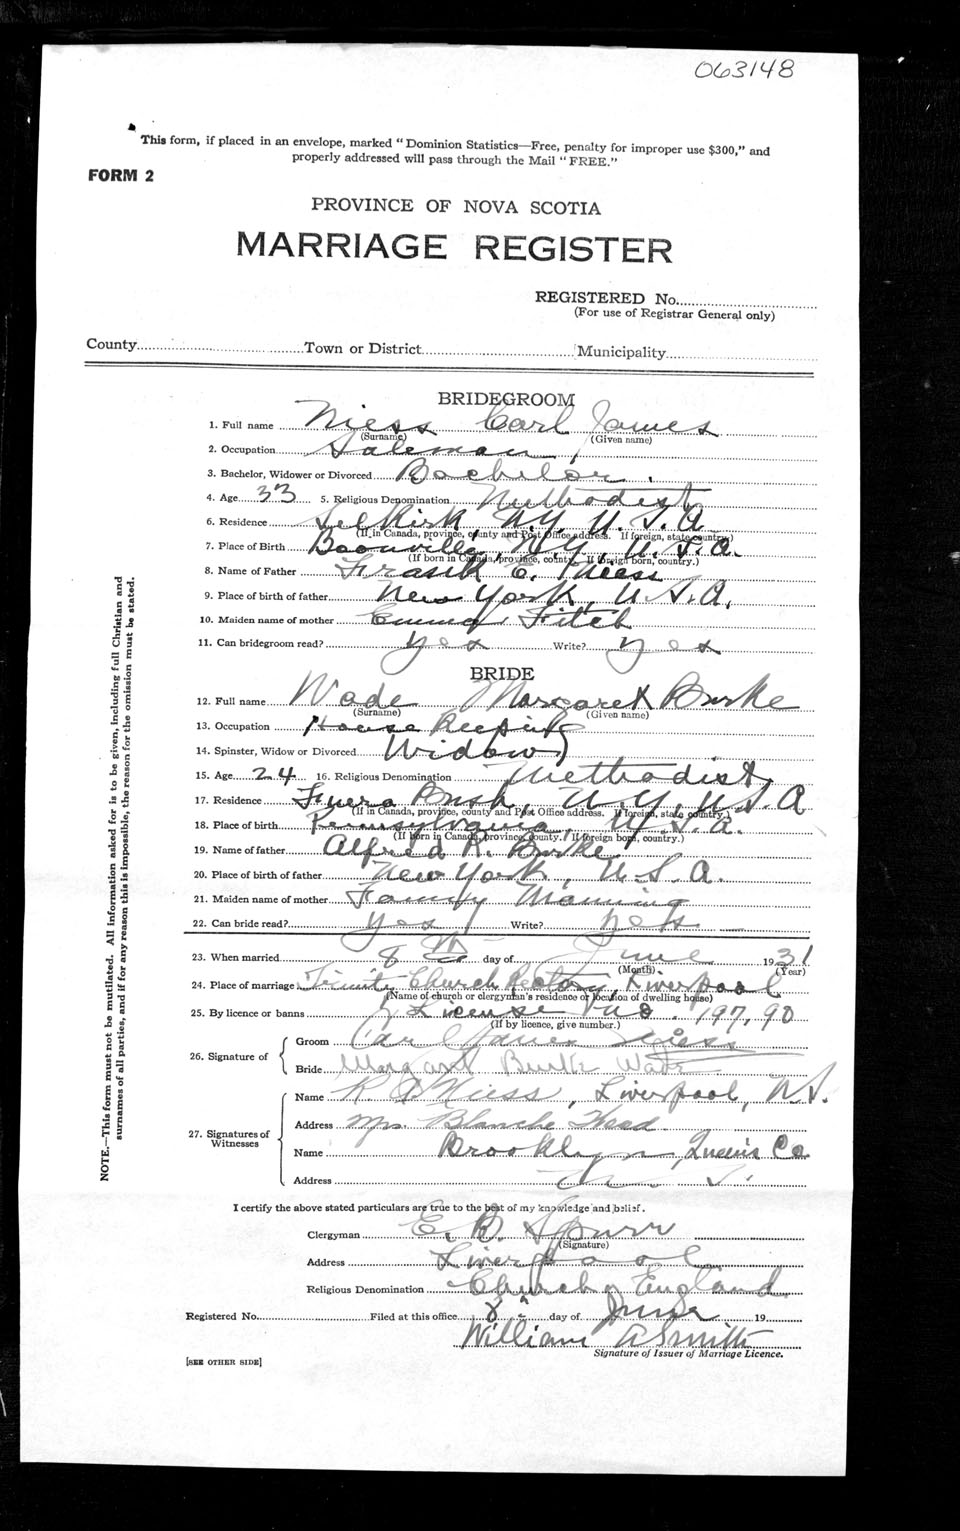 063148
This form, if placed in an envelope, marked "Dominion Statistics—Free, penalty for improper use $300," and
properly addressed will pass through the Mail "FREE."
FORM 2
PROVINCE OF NOVA SCOTIA
MARRIAGE REGISTER
REGISTERED No.
(For use of Registrar General only)
County Town or District Municipality
BRIDEGROOM
1. Full name Niess Carl James
(Surname) (Given name)
2. Occupation Saleman
3. Bachelor, Widower or Divorced Bachelor.
4. Age 33 5. Religious Denomination Methodist
6. Residence Selkirk N.Y. U.S.A
(If in Canada, province, county and Post Office address. If foreign, state country)
7. Place of Birth Boonville, N.Y., U.S.A.
(If born in Canada, province, county. If foreign born, country.)
8. Name of Father Frank E. Niess
9. Place of birth of father New York, U.S.A.
10. Maiden name of mother Emma Fitch
11. Can bridegroom read? yes Write? yes
BRIDE
12. Full name Wade Margaret Burke
(Surname) (Given name)
13. Occupation House Keeping
14. Spinster, Widow or Divorced Widow
15. Age 24 16. Religious Denomination Methodist
17. Residence Bush, N.Y., U.S.A
(If in Canada, province, county and Post Office address. If foreign, state country.)
18. Place of birth Pennsylvania, U.S.A.
(If born in Canada, province county. If foreign born, country.)
19. Name of father Alfred R. Burke
20. Place of birth of father New York, U.S.A.
21. Maiden name of mother Manning
22. Can bride read? yes Write? yes
23. When married 8th day of June 1931
(Month) (Year)
24. Place of marriage Trinity Church Rectory, Liverpool
(Name of church or clergyman's residence or location of dwelling house)
25. By licence or banns License No. 197,90
(If by licence, give number.)
26. Signature of
Groom Carl James Niess
Bride Margaret Burke Wade
27. Signatures of
Witnesses
Name Niess, Liverpool, N.S.
Address Mrs Blanche Head
Name Brooklyn, Queens Co
Address N. S.
I certify the above stated particulars are true to the best of my knowledge and belief.
Clergyman E. B. Spurr
(Signature)
Address Liverpool
Religious Denomination Church of England
Registered No. Filed at this office 8 day of June 19
William A Smith
Signature of Issuer of Marriage Licence.
[SEE OTHER SIDE]
NOTE.—This form must not be mutilated. All information asked for is to be given, including full Christian and
surnames of all parties, and if for any reason this is impossible, the reason for the omission must be stated.